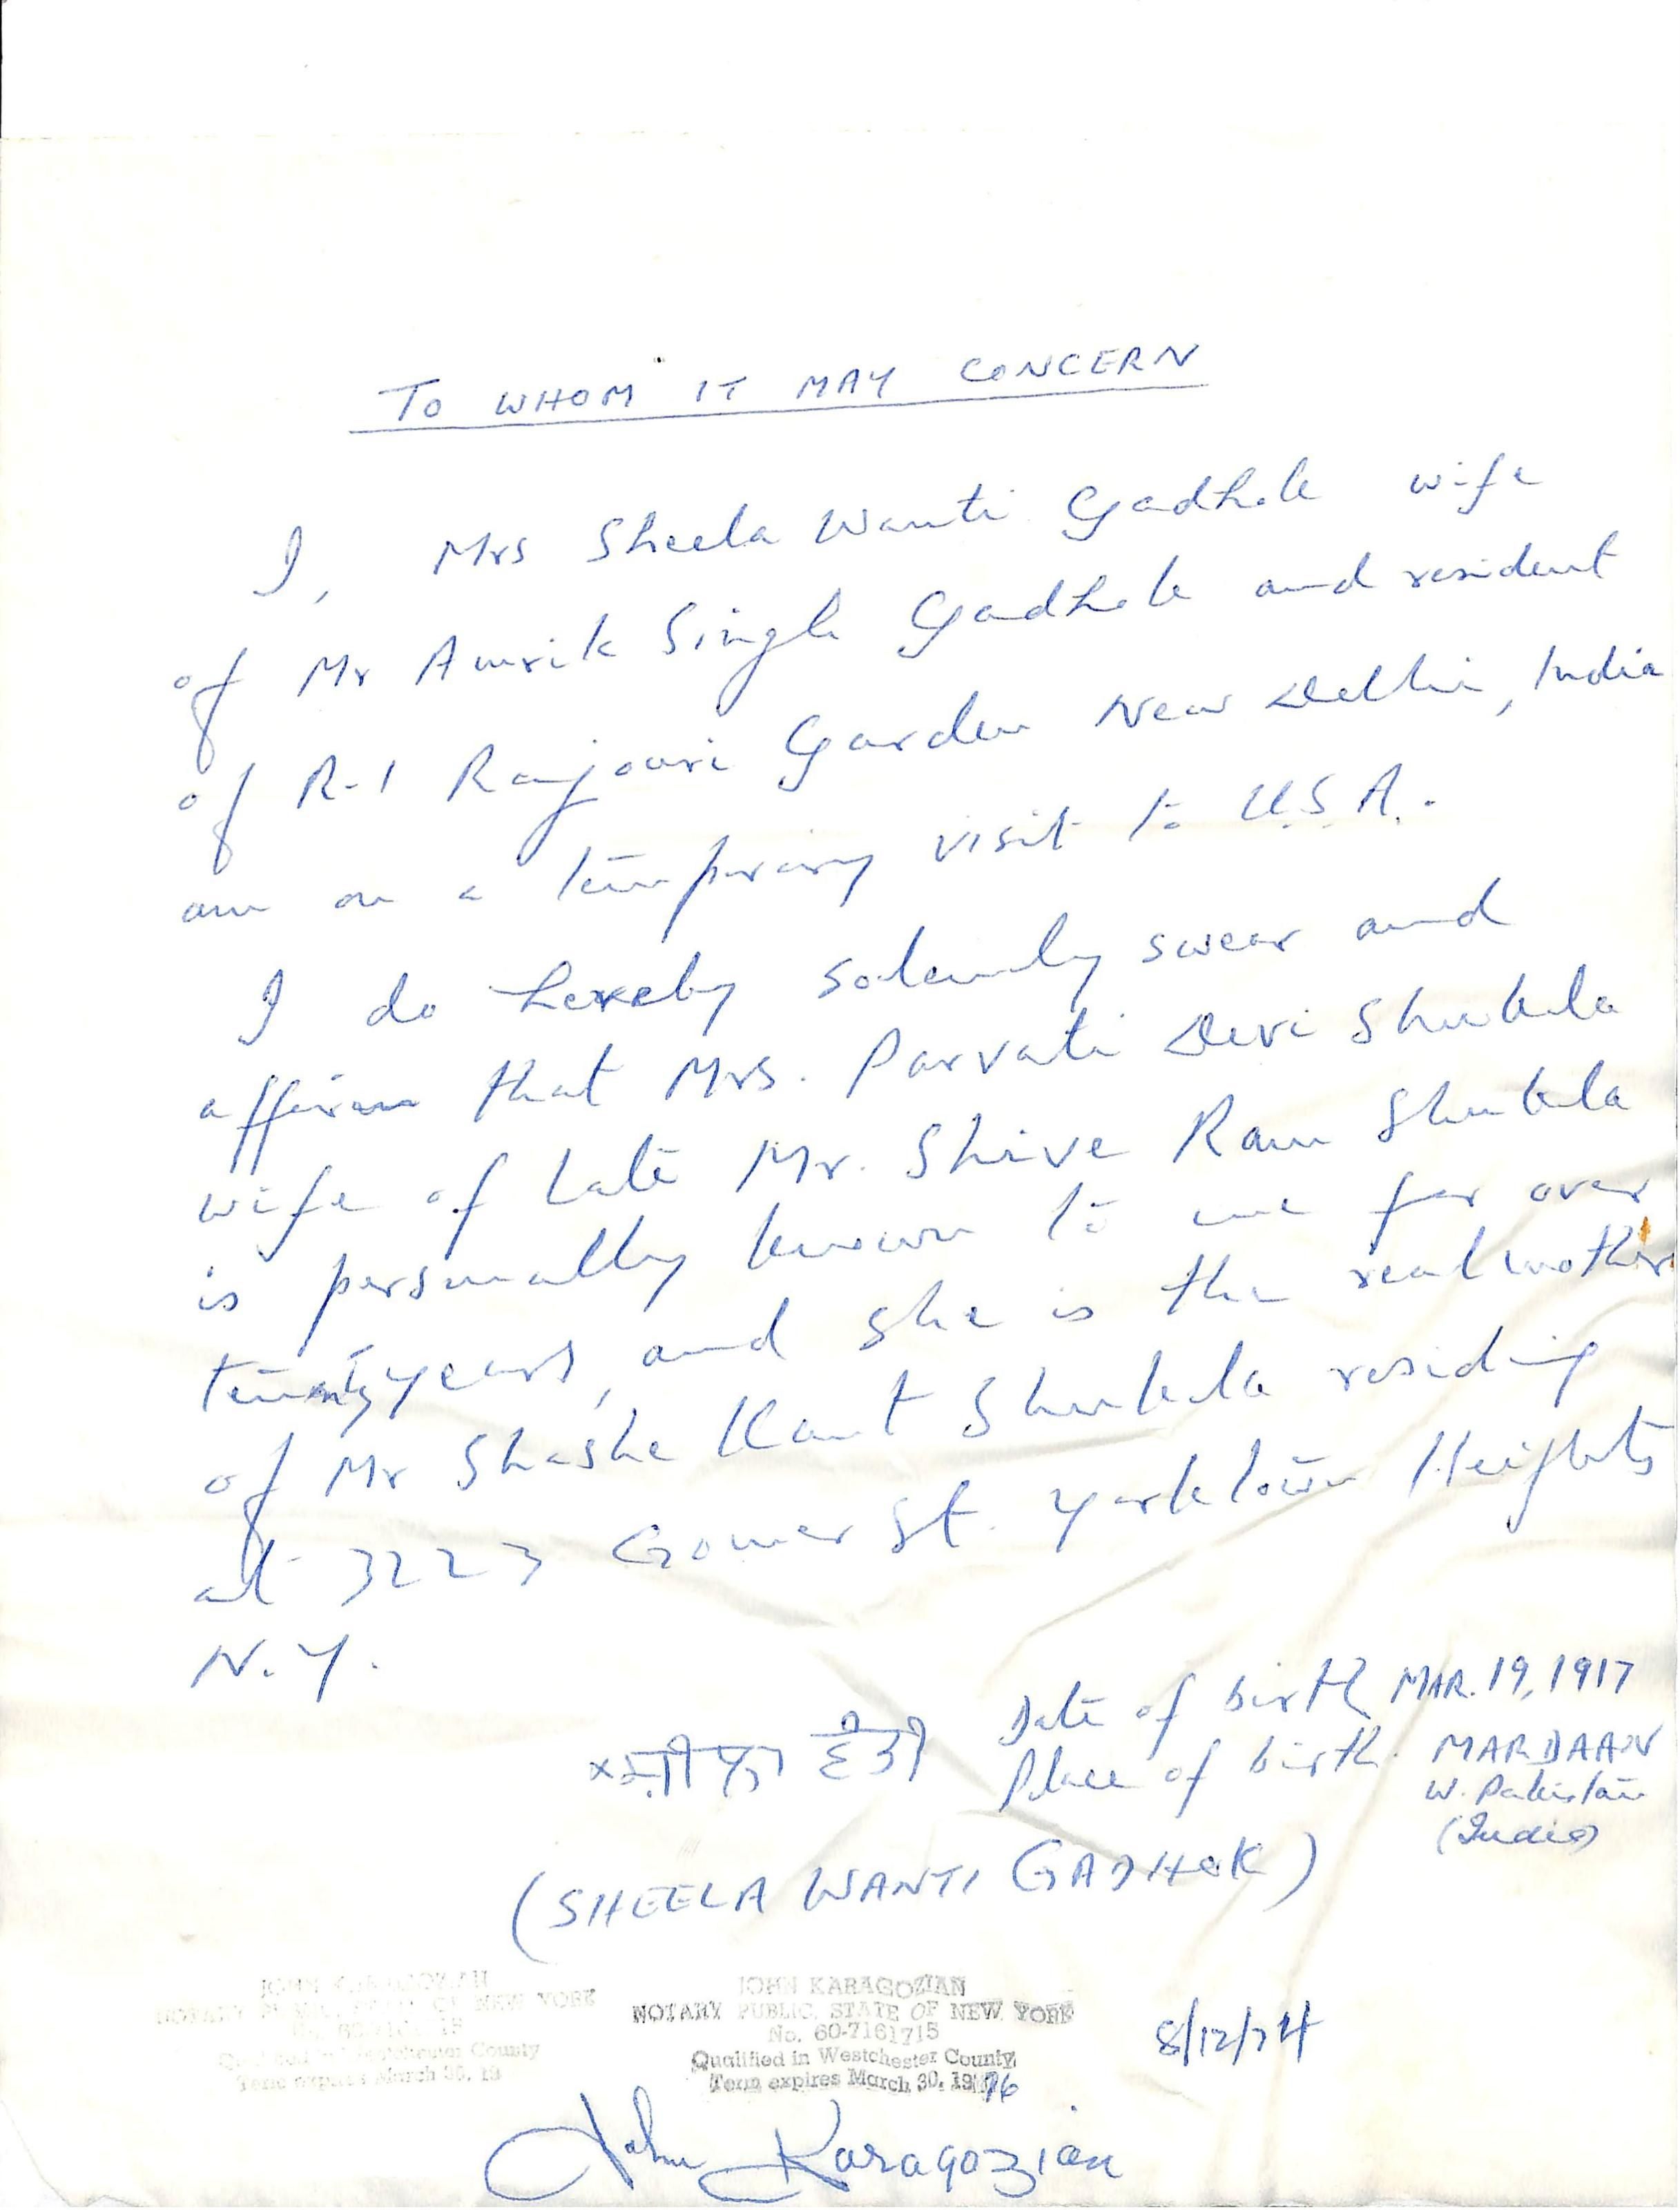 TO WHOM IT MAY CONCERN
I, Mrs Sheela Wanti Gadhok wife
of Mr Amrik Singh Gadhok and resident
of R-1 Rajouri Garden New Delhi, India
am on a temporary visit to U.S.A.
I do hereby solemnly swear and
affirm that Mrs. Parvati Devi Shukla
wife of late Mr. Shive Ram Shukla
is personally known to me for over
twenty years, and she is the real mother
of Mr Shashe Kant Shukla residing
at 3223 Gomer St. Yorktown Heights
N.Y.
Date of birth MAR. 19, 1917
Place of birth. MARDAAN
W. Pakistan
(India)
(SHEELA WANTI GADHOK)
JOHN KARAGOZIAN
NOTARY PUBLIC, STATE OF NEW YORK
No. 60-7161715
Qualified in Westchester County
Term expires March 30, 1976
JOHN KARAGOZIAN
NOTARY PUBLIC, STATE OF NEW YORK
No. 60-7161715
Qualified in Westchester County
Term expires March 30, 19
8/12/74
John Karagozian